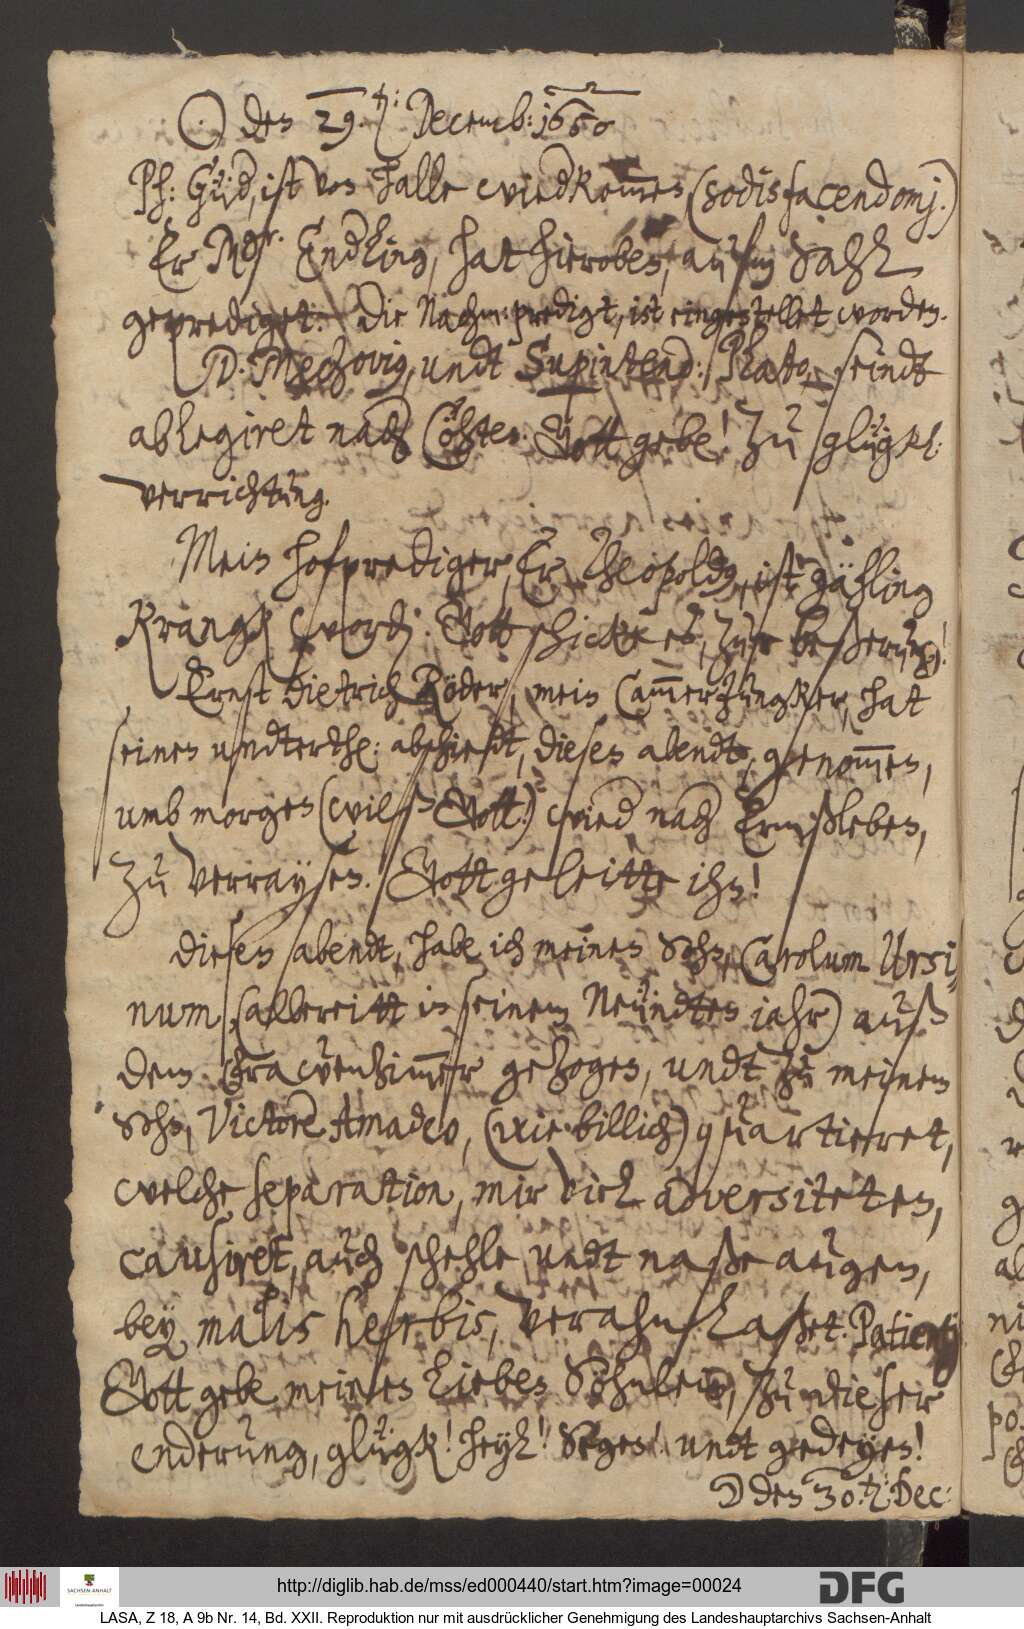 ☉ den 29.t: Decemb: 1650
Ph: Güd, ist von Halle wiedkom̅en (sodisfacendomj.)
Er Mgr. Endling, hat hieroben, aufm Sahl
geprediget. Die Nachm: predigt, ist eingestellet worden.
D. Mechovius, undt Supintend: Plato, seindt
ablegiret nach Cöhten. Gott gebe! zu glügkl:
verrichtung.
Mein hofprediger, Er Theopoldus, ist gähling
Krangk word: Gott schicke es, zur beßerung!
Ernst Dietrich Röder, mein Cam̅erJungker, hat
seinen undterth: abschiedt, diesen abendt, genom̅en,
umb morgen (wils Gott) wied nach Ermßleben,
zu verraysen. Gott geleitte ihn!
Diesen abendt, habe ich meinen Sohn, Carolum Ursi-
num, (allbereitt in seinem Neundten jahr) auß
dem Frawenzim̅er gezogen, undt zu meinem
Sohn, Victore Amadeo, (wie billich) quartieret,
welche separation, mir viel adversiteten,
causiret, auch schehle undt naße augen,
bey malis herbis, verahnlaßet. Patientz
Gott gebe meines liebes Söhnlein, zu dieser
enderung, glügk! heyl! Segen! undt gedeyen!
☽ den 30.t: Dec:
http://diglib.hab.de/mss/ed000440/start.htm?image=00024
SACHSEN-ANHALT
DFG
LASA, Z 18, A 9b Nr. 14, Bd. XXII. Reproduktion nur mit ausdrücklicher Genehmigung des Landeshauptarchivs Sachsen-Anhalt